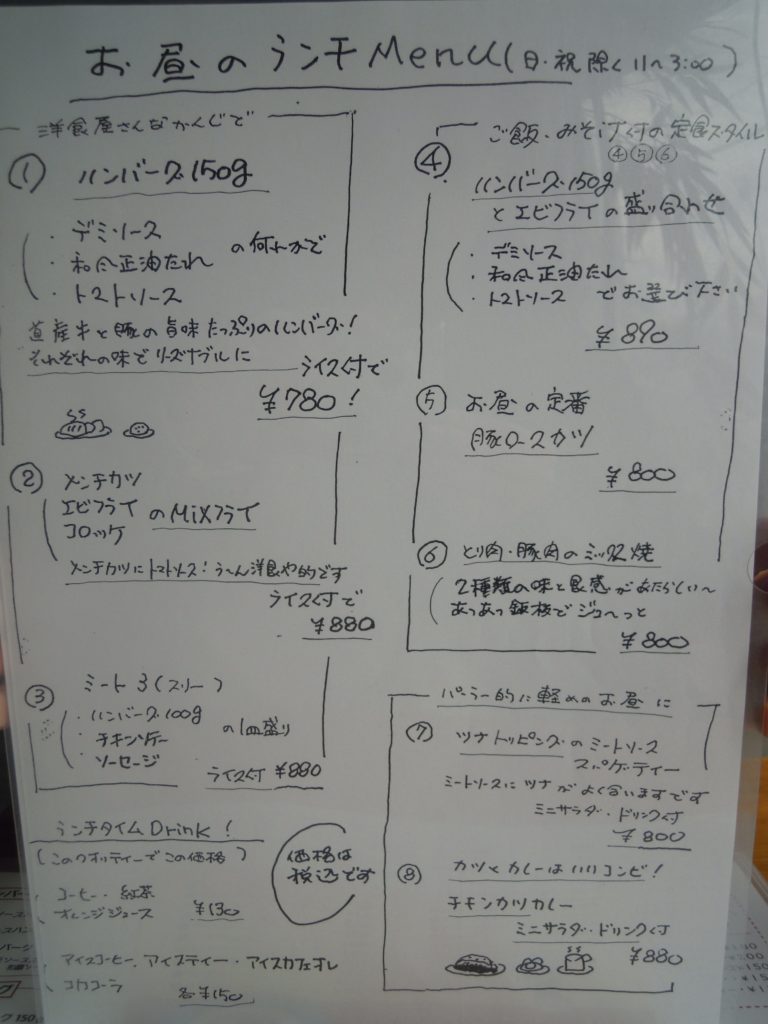 お昼のランチMenu(日・祝除く11〜3:00)
洋食屋さんなかんじで
① ハンバーグ150g
・デミソース
・和風正油たれ の何れかで
・トマトソース
道産牛と豚の旨味たっぷりのハンバーグ!
それぞれの味でリーズナブルに
ライス付で
¥780!
② メンチカツ
エビフライ のMixフライ
コロッケ
メンチカツにトマトソース!う〜ん洋食や的です
ライス付で
¥880
③ ミート3(スリー)
・ハンバーグ100g
・チキンソテー の1皿盛り
・ソーセージ
ライス付 ¥880
ランチタイムDrink!
(このクオリティーでこの価格)
コーヒー・紅茶
オレンジジュース ¥130
アイスコーヒー、アイスティー・アイスカフェオレ
コカコーラ 各¥150
価格は
税込です
ご飯・みそ汁付の定食スタイル
④⑤⑥
④ ハンバーグ150g
とエビフライの盛り合わせ
・デミソース
・和風正油たれ
・トマトソース でお選び下さい
¥890
⑤ お昼の定番
豚ロースカツ
¥800
⑥ とり肉・豚肉のミックス焼
2種類の味と食感があたらしい〜
あつあつ鉄板でジュ〜っと
¥800
パーラー的に軽めのお昼に
⑦ ツナトッピングのミートソース
スパゲティー
ミートソースにツナがよく合いますです
ミニサラダ・ドリンク付
¥800
⑧ カツとカレーはいいコンビ!
チキンカツカレー
ミニサラダ・ドリンク付
¥880